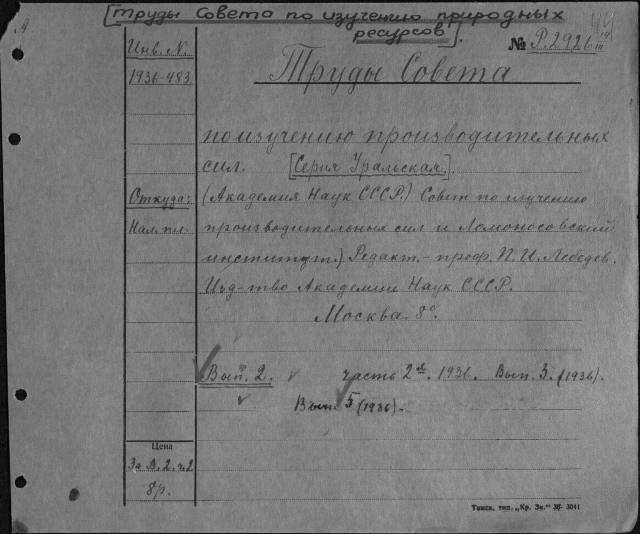 [Труды Совета по изучению природных
ресурсов].
Инв. №.
1936-483.
№ Р.2926
Труды Совета
по изучению производительных
сил. [Серия Уральская.]
Откуда:
(Академия Наук СССР.) Совет по изучению
Нал. пл.
производительных сил и Ломоносовский
институт.) Редакт.- проф. П. И. Лебедев.
Изд-тво Академии Наук СССР.
Москва. 8°.
Вып. 2. часть 2ая. 1936. Вып. 3. (1936).
Вып. 5 (1936).
Цена
За В. 2. ч. 2
8р.
Томск, тип. „Кр. Зн." 36- 3041